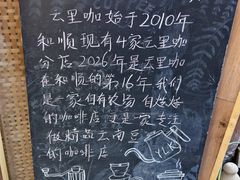 云里咖始于2010年
和顺现有4家云里咖
分店.2026年是云里咖
在和顺的第16年我们
是一家自有农场 自烘焙
的咖啡店 这是一家专注
做精品云南豆
的咖啡店
YLK